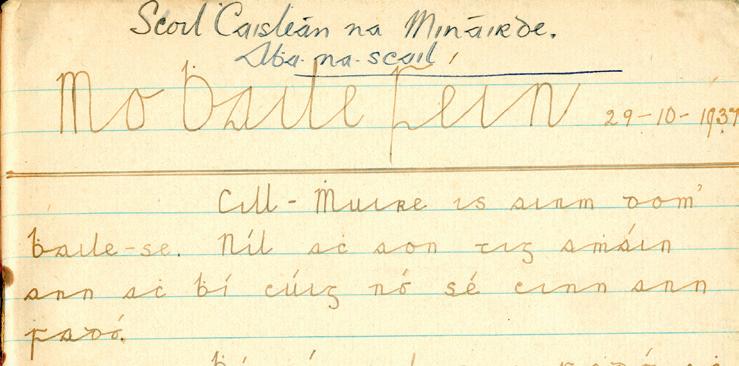 Scoil Caisleán na Mináirde.
Aba-na-scail
Mo ḃaile féin 29-10-1937
Cill-Ṁuire is ainm dom'
ḃaile-se. Níl aċ aon tig amáin
ann aċ ḃí cúig nó sé cinn ann
fadó.